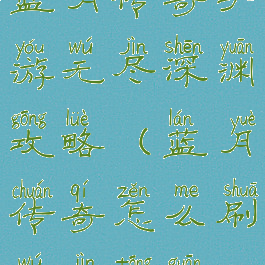 蓝月传奇
yóu wú jìn shēn yuān
游无尽深渊
gōng lüè lán yuè
攻略（蓝月
chuán qí zěn me shuā
传奇怎么刷
wú jìn